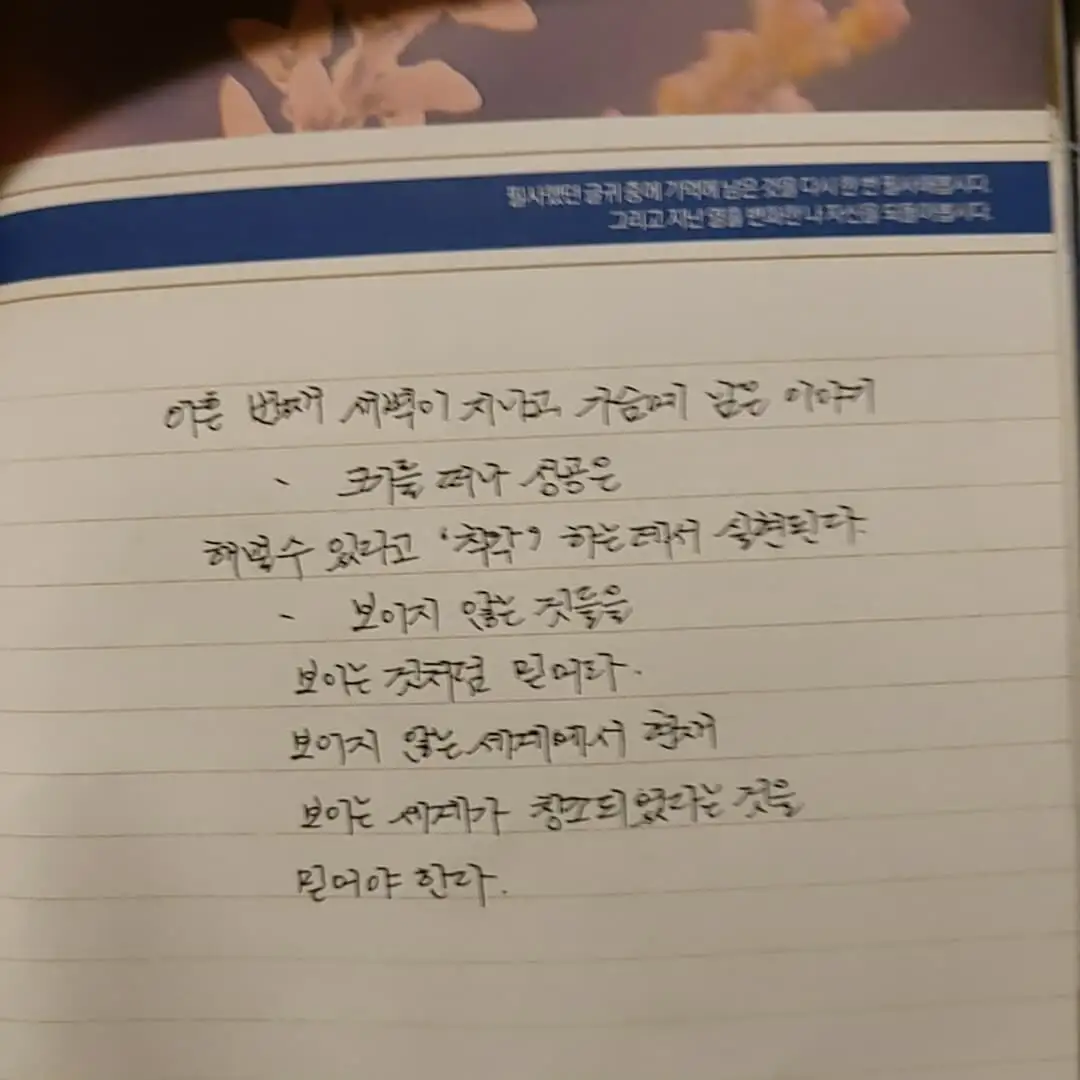 필사했던 글귀 중에 기억에 남은 것을 다시 한 번 필사해봅시다.
그리고 지난 열흘 변화한 나 자신을 되돌아봅시다.
아흔 번째 새벽이 지나고 가슴에 남은 이야기
- 크기를 떠나 성공은
해낼수 있다고 '착각' 하는데서 실현된다.
- 보이지 않는 것들을
보이는 것처럼 믿어라.
보이지 않는 세계에서 현재
보이는 세계가 창조되었다는 것을
믿어야 한다.